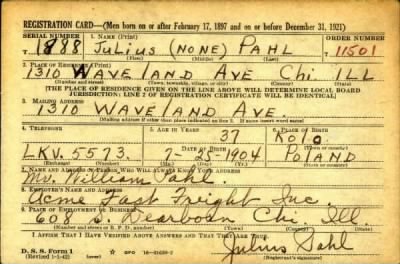 REGISTRATION CARD—(Men born on or after February 17, 1897 and on or before December 31, 1921)
SERIAL NUMBER 1. NAME (Print) ORDER NUMBER
T 1888 Julius (NONE) PAHL 11501
(First) (Middle) (Last)
2. PLACE OF RESIDENCE (Print)
1310 WAVELAND AVE Chi. ILL
(Number and street) (Town, township, village, or city) (County) (State)
[THE PLACE OF RESIDENCE GIVEN ON THE LINE ABOVE WILL DETERMINE LOCAL BOARD
JURISDICTION; LINE 2 OF REGISTRATION CERTIFICATE WILL BE IDENTICAL]
3. MAILING ADDRESS
1310 WAVELAND AVE.
(Mailing address if other than place indicated on line 2. If same insert word same)
4. TELEPHONE 5. AGE IN YEARS 6. PLACE OF BIRTH
37 Kolo
DATE OF BIRTH
LKV. 5573 7-25-1904 POLAND
(Exchange) (Number) (Mo.) (Day) (Yr.)
7. NAME AND ADDRESS OF PERSON WHO WILL ALWAYS KNOW YOUR ADDRESS
William Pahl.
8. EMPLOYER'S NAME AND ADDRESS
Acme Fast Freight Inc.
9. PLACE OF EMPLOYMENT OR BUSINESS
608 S. Dearborn Chi. Ill.
(Number and street or R. F. D. number) (Town) (County) (State)
I AFFIRM THAT I HAVE VERIFIED ABOVE ANSWERS AND THAT THEY ARE TRUE.
D. S. S. Form 1
(Revised 1-1-42) GPO
Julius Pahl
(Registrant's signature)